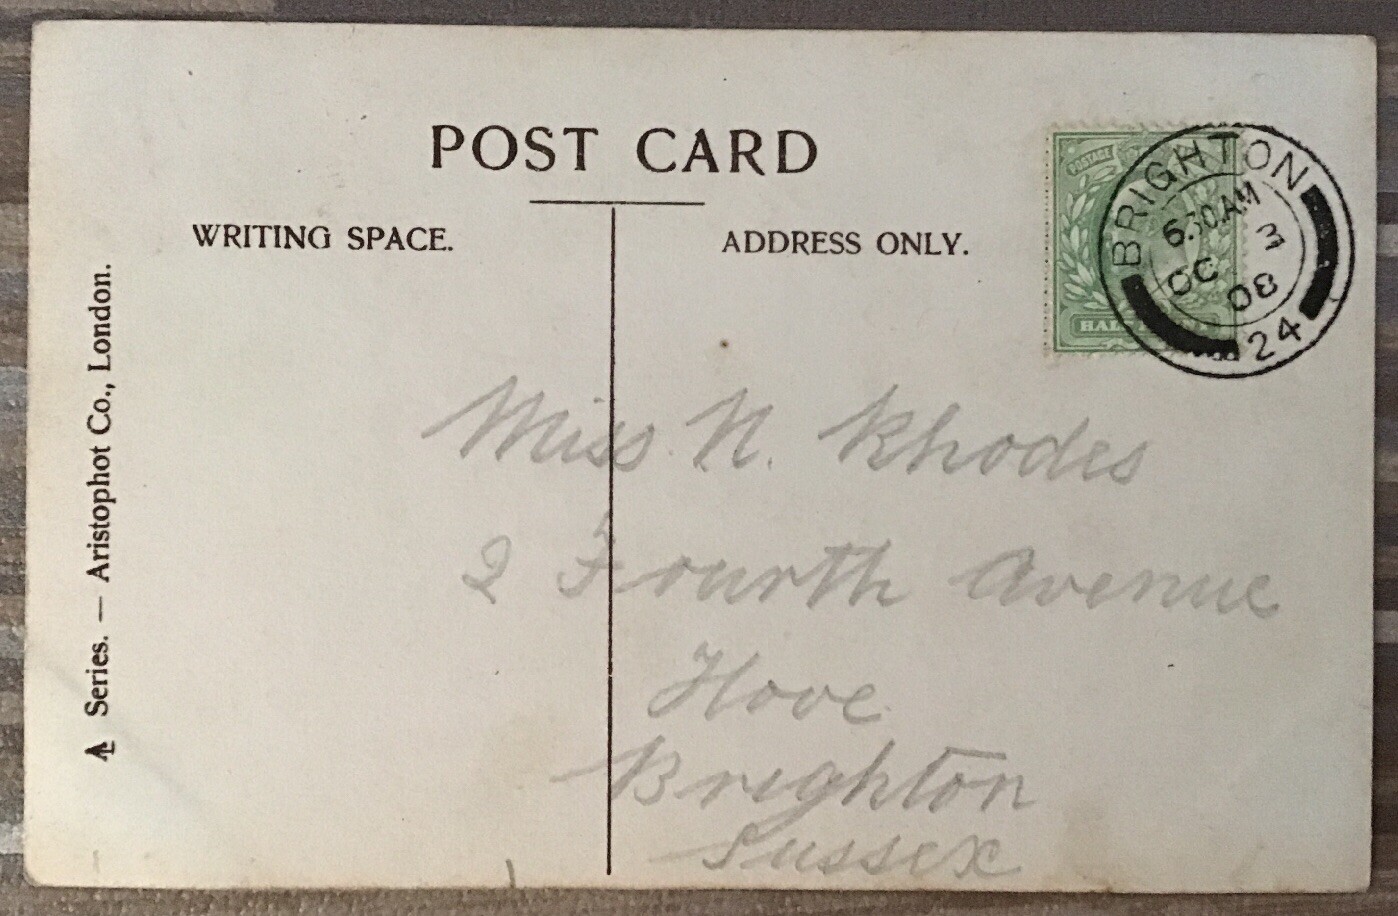 POST CARD
WRITING SPACE.
ADDRESS ONLY.
Series. — Aristophot Co., London.
POSTAGE
HAL
BRIGHTON
6.30 AM
OC 3
08
24
Miss N. Rhodes
2 Fourth Avenue
Hove
Brighton
Sussex